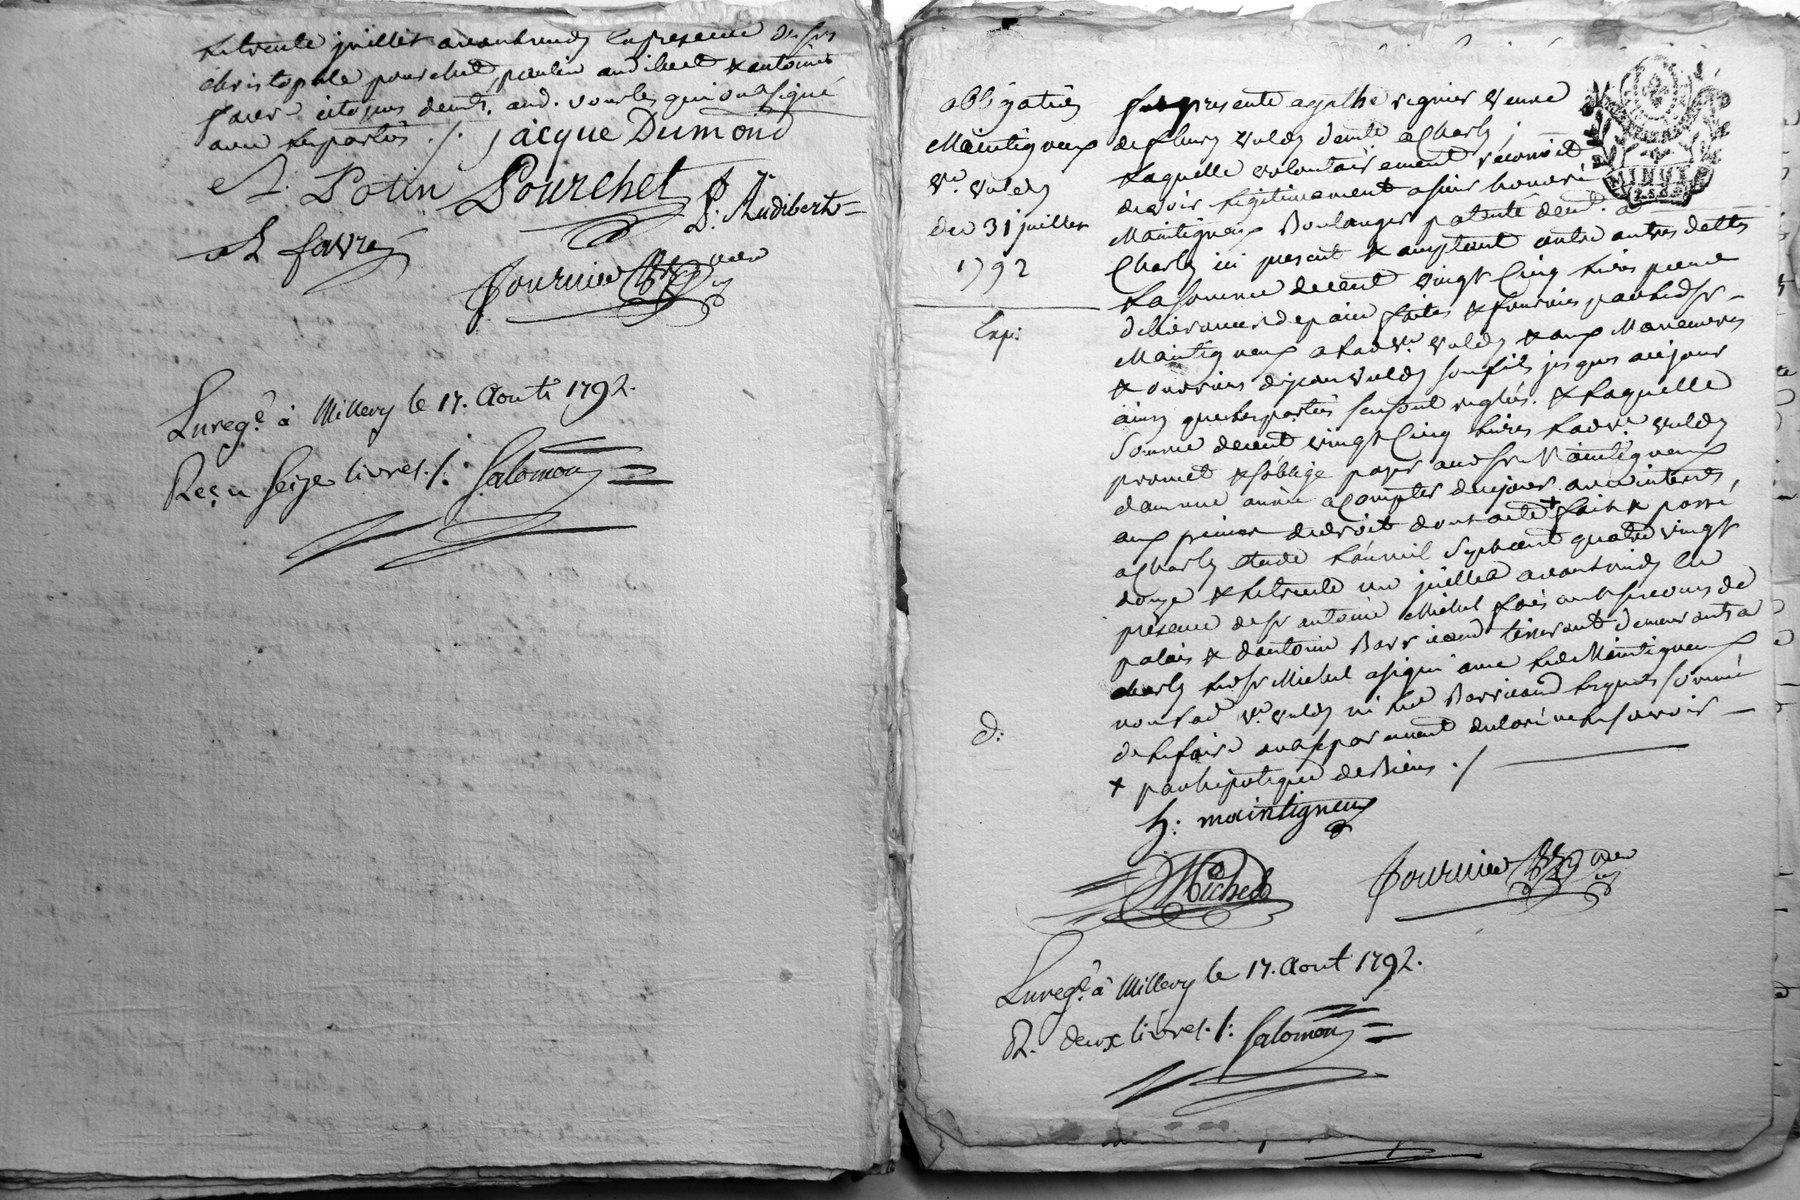 le trente juillet avant midy en presence de srs
christophle pourchet, paulin audibert & antoine
faver citoyens demts. aud. vourles qui ont signé
avec les parties ./. jacque Dumond
A. Potin Pourchet P. Audibert
A favre
fournier
Enregé. à Millery le 17. Aout 1792.
Reçu seize livres ./. Salomon
obligation
Maintigneux
Ve. vuldy
du 31 juillet
1792
Exp:
fut presente agathe regnier veuve
de fleury vuldy demte. a Charly
laquelle volontairement reconnoit
devoir legitimement a sieur honoré
Maintigneux Boulanger patenté demt. a
Charly ici present & acceptant entre autres dettes
la somme de cent vingt Cinq livres pour
délivrances de pain faites & fournies par led sr
Maintigneux a lad ve. vuldy & aux Manœuvres
& ouvriers de jean vuldy son fils jusques a ce jour
ainsy que les parties se sont reglés. & laquelle
somme de cent vingt Cinq livres lad ve. vuldy
promet & s'oblige payer aud sr Maintigneux
dans une année a Compter de ce jour avec interets
aux peines de droit dont acte + fait & passé
a Charly etude l'an mil sept cent quatre vingt
douze & le trente un juillet avant midy en
presence de sr antoine Michel
palais & d'antoine Barricand tisserand demeurants a
charly led sr Michel a signé avec led Maintigneux
non lad ve. vuldy ni led Barricand lesquels sommé
de le faire ont separement declaré ne le savoir
+ par hipoteque de Biens ./
D:
h: maintigneux
Michel fournier
Enregé. à Millery le 17. Aout 1792.
R. deux livres ./. Salomon